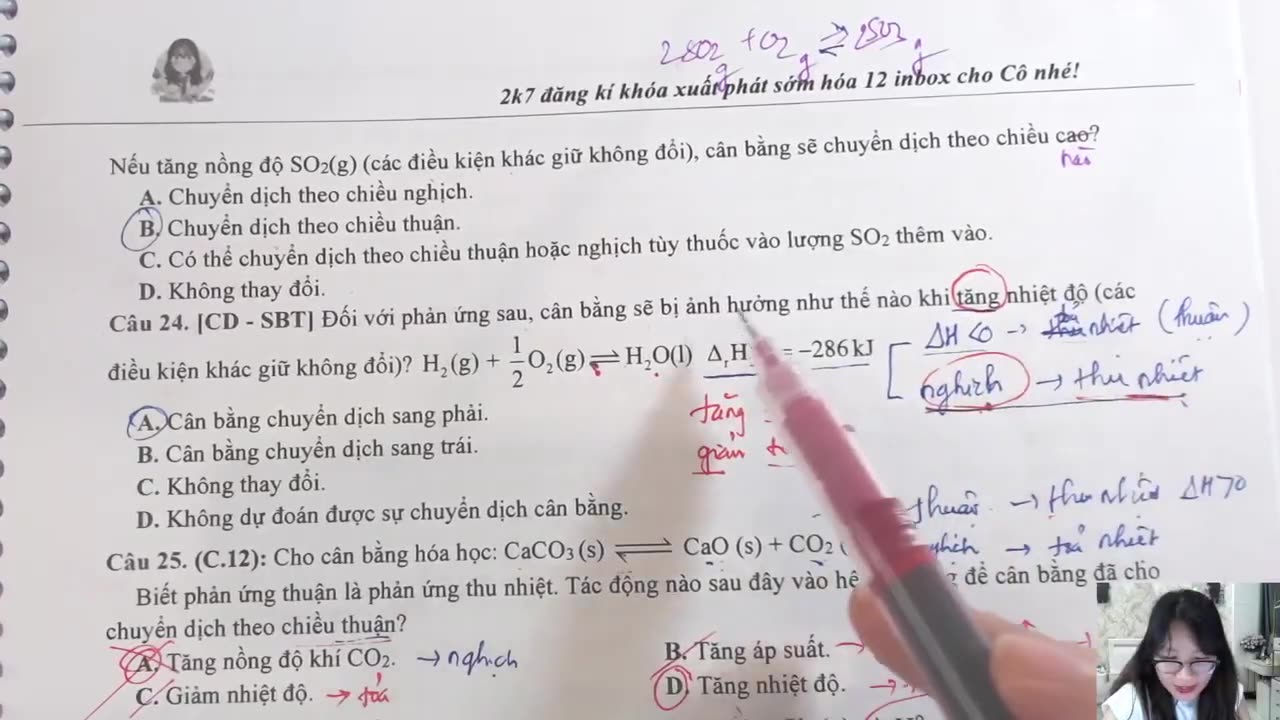 2SO2 + O2 ⇌ 2SO3
g g g
2k7 đăng kí khóa xuất phát sớm hóa 12 inbox cho Cô nhé!
Nếu tăng nồng độ SO₂(g) (các điều kiện khác giữ không đổi), cân bằng sẽ chuyển dịch theo chiều cao?
nào
A. Chuyển dịch theo chiều nghịch.
B. Chuyển dịch theo chiều thuận.
C. Có thể chuyển dịch theo chiều thuận hoặc nghịch tùy thuốc vào lượng SO₂ thêm vào.
D. Không thay đổi.
Câu 24. [CD - SBT] Đối với phản ứng sau, cân bằng sẽ bị ảnh hưởng như thế nào khi tăng nhiệt độ (các
điều kiện khác giữ không đổi)? H₂(g) + 1/2 O₂(g) ⇌ H₂O(l) ΔᵣH = −286 kJ
ΔH <0 → nhiệt (thuận)
nghịch → thu nhiệt
A. Cân bằng chuyển dịch sang phải.
tăng
B. Cân bằng chuyển dịch sang trái.
giản
C. Không thay đổi.
thuận → thu nhiệt ΔH >0
D. Không dự đoán được sự chuyển dịch cân bằng.
→ toả nhiệt
Câu 25. (C.12): Cho cân bằng hóa học: CaCO₃ (s) ⇌ CaO (s) + CO₂ (
Biết phản ứng thuận là phản ứng thu nhiệt. Tác động nào sau đây vào hệ để cân bằng đã cho
chuyển dịch theo chiều thuận?
A. Tăng nồng độ khí CO₂. → nghịch
B. Tăng áp suất. →
C. Giảm nhiệt độ. → toả
D. Tăng nhiệt độ. →